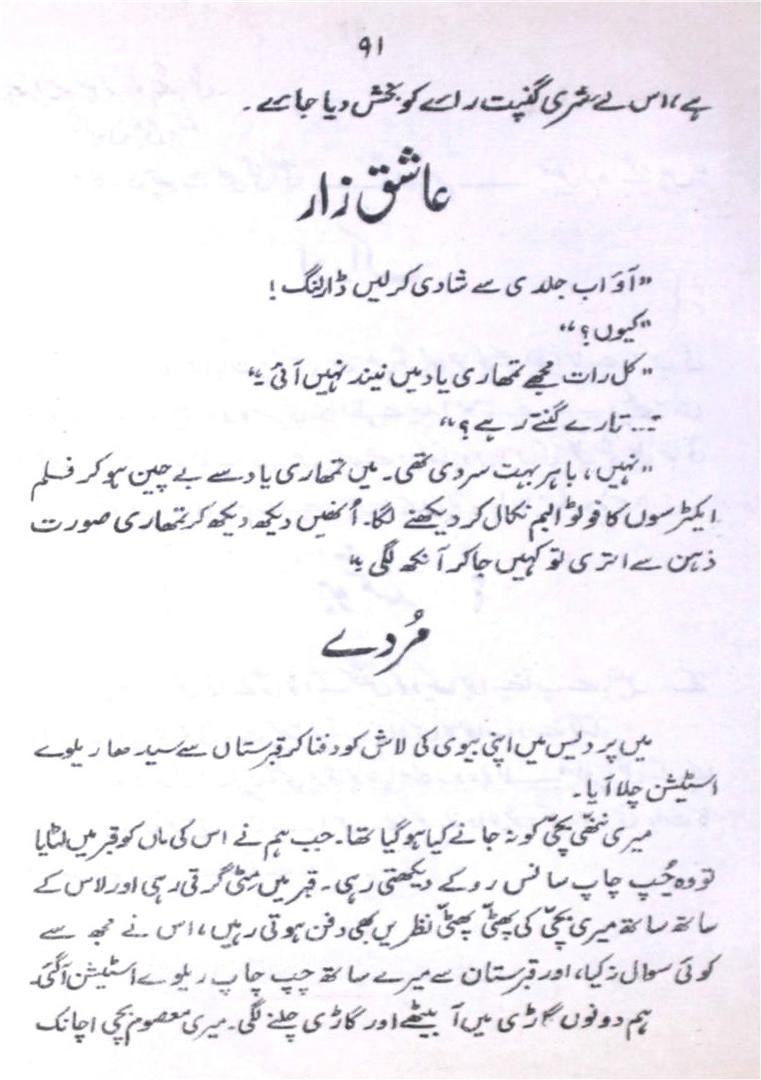 ۹۱
ہے، اس لے شری گنپت راے کو بخش دیا جاے۔
عاشق زار
”آؤ اب جلدی سے شادی کر لیں ڈارلنگ!
”کیوں؟“
”کل رات مجھے تمھاری یاد میں نیند نہیں آئی۔“
”... تارے گنتے رہے؟“
”نہیں، باہر بہت سردی تھی۔ میں تمھاری یاد سے بے چین ہو کر فلم
ایکٹرسوں کا فوٹو البم نکال کر دیکھنے لگا۔ اُنھیں دیکھ دیکھ کر تمھاری صورت
ذہن سے اتری تو کہیں جا کر آنکھ لگی۔“
مُردے
میں پردیس میں اپنی بیوی کی لاش کو دفنا کر قبرستان سے سیدھا ریلوے
اسٹیشن چلا آیا۔
میری ننھّی بچّی کو نہ جانے کیا ہو گیا تھا۔ جب ہم نے اس کی ماں کو قبر میں لٹایا
تو وہ چُپ چاپ سانس روکے دیکھتی رہی۔ قبر میں مٹی گرتی رہی اور لاس کے
ساتھ ساتھ میری بچّی کی پھٹیّ پھٹیّ نظریں بھی دفن ہوتی رہیں، اس نے مجھ سے
کوئی سوال نہ کیا، اور قبرستان سے میرے ساتھ چپ چاپ ریلوے اسٹیشن آ گئی۔
ہم دونوں گاڑی میں آ بیٹھے اور گاڑی چلنے لگی۔ میری معصوم بچی اچانک